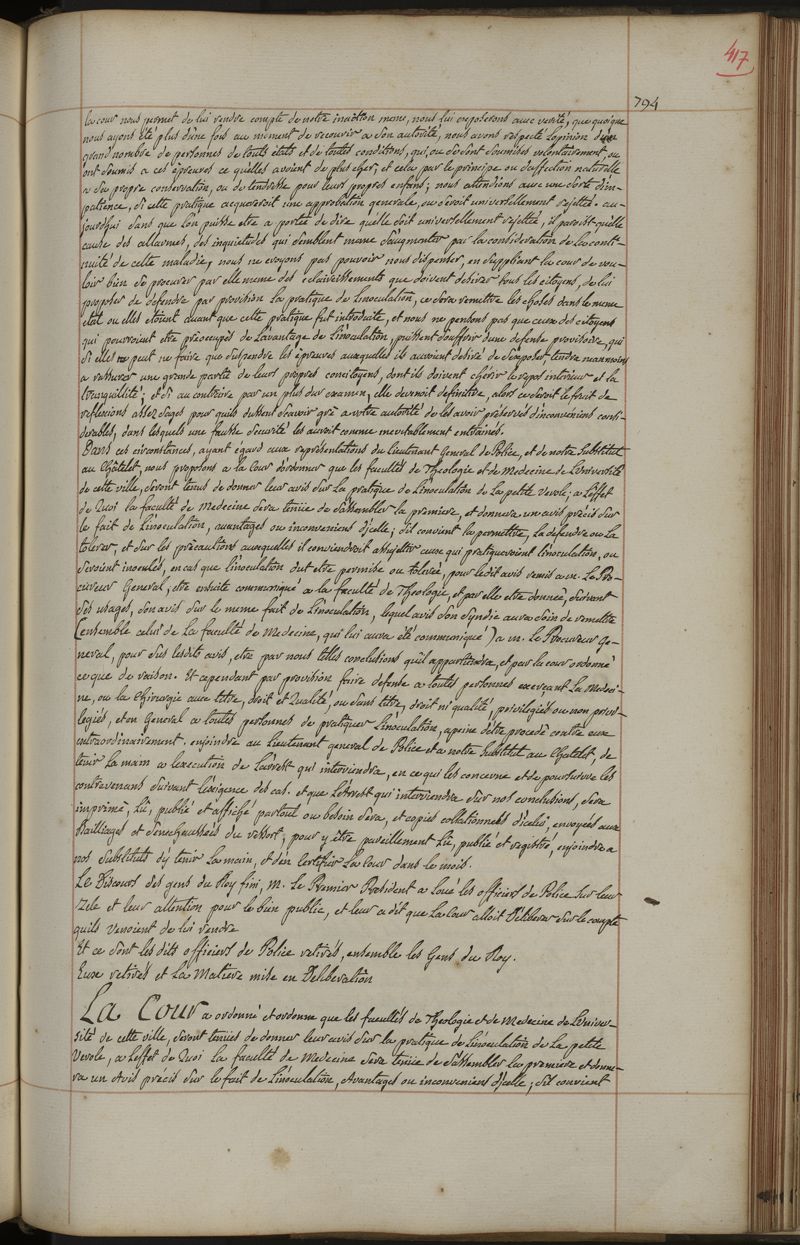 417
794
la cour nous permet de lui rendre compte de notre inaction meme, nous lui exposerons avec verité, que quoique
nous ayons été plus d'une fois au moment de recourir a son autorité, nous avons respecté l'opinion d'un
grand nombre de personnes de touts états et de toutes conditions, qui, ou se sont soumises volontairement, ou
ont soumis a ces épreuves ce qu'elles avoient de plus cher, et cela par le principe ou d'affection naturelle
a sa propre conservation, ou de tendresse pour leurs propres enfans; nous attendions avec une sorte d'im-
patience, si cette pratique acquereroit une approbation generale, ou seroit universellement rejettée. au-
jourdhui sans que l'on puisse etre a portée de dire qu'elle soit universellement rejettée, il paroist qu'elle
cause des allarmes, des inquietudes qui semblent meme s'augmenter par la consideration de la conti-
nuité de cette maladie, nous ne croyons pas pouvoir nous dispenser, en suppliant la cour de vou-
loir bien se procurer par elle meme des eclaircissements que doivent desirer tous les citoyens, de lui
proposer de defendre par provision la pratique de linoculation, ce sera remettre les choses dans le meme
etat ou elles étoient avant que cette pratique fut introduite, et nous ne pensons pas que ceux des citoyens
qui pourroient etre préocupés de l'avantage de Linoculation, puissent souffrir d'une defense provisoire, qui
si elle ne peut ne faire que suspendre les épreuves auxquelles ils auroient desiré de s'exposer, tendra neanmoins
a rassurer une grande partie de leurs propres concitoyens, dont ils doivent chérir le repos interieur et la
tranquilité; et si au contraire par un plus dur examen, elle devenoit definitive, alors ce seroit le fruit de
reflexions assez sages pour quils dussent sçavoir gré a votre autorité de les avoir préservés d'inconveniens consi-
derables, dans lesquels une fausse sécurité les auroit comme inevitablement entrainés.
Dans ces circonstances, ayant égard aux représentations du Lieutenant General de Police, et de notre Substitut
au Châtelet, nous proposons a la Cour d'ordonner que les facultés de Theologie et de Medecine de L'université
de cette ville, seront tenus de donner leur avis sur La pratique de Linoculation de La petite verole; a Leffet
de Quoi la faculté de Medecine sera tenüe de s'assembler la premiere, et donnera un avis précis sur
le fait de Linoculation, avantages ou inconveniens d'icelle; s'il convient la permettre, la defendre ou la
tolerer, et sur les précautions auxquelles il conviendroit assujettir ceux qui pratiqueroient linoculation, ou
seroient inoculés, en cas que linoculation dut etre permise ou tolerée, pour ledit avis remis a m. Le Pro-
cureur General, etre ensuite communiqué a la faculté de Theologie, et par elle etre donnée, suivant
ses usages, son avis sur le meme fait de Linoculation, lequel avis son syndic aura soin de remettre
(ensemble celui de La faculté de Medecine, qui lui aura été communiqué) a m. Le Procureur Ge-
neral, pour sur lesdits avis, etre par nous telles conclusions qu'il appartiendra, et par la cour ordonné
ce que de raison. Et cependant par provision faire defense a toutes personnes exerçant La Medeci-
ne, ou la Chirurgie avec titre, droit et Qualité, ou sans titre, droit ni qualité, privilegiés ou non privi-
legiés, et en General a toutes personnes de pratiquer Linoculation, a peine d'être procedé contre eux
extraordinairement. enjoindre au Lieutenant general de Police et a notre Substitut au Chatelet, de
tenir La main a lexecution de Larrest qui interviendra, en ce qui les concerne et de poursuivre les
contrevenans suivant l'exigence des cas. et que L'Arrest qui interviendra sur nos conclusions, sera
imprimé, Lû, publié et affiché partout ou besoin sera, et copies collationnées d'icelui, envoyées aux
Bailliages et Senechaussées du ressort; pour y etre pareillement Lû, publié et registré, enjoindre a
nos Substituts d'y tenir La main, et d'en Certifier La Cour dans le mois.
Le Discours des gens du Roy fini, M. Le Premier President a Loué les officiers de Police sur leur
zele et leur attention pour le bien public, et leur a dit que La Cour alloit Déliberer sur le compte
quils venoient de lui rendre
Et ce sont les dits officiers de Police retirés, ensemble les Gens du Roy.
Eux retirés et La Matiere mise en Deliberation
La Cour a ordonné et ordonne que les facultés de Theologie et de Medecine de L'univer-
sité de cette ville, seront tenües de donner leur avis sur la pratique de Linoculation de La petite
Verole, a Leffet de Quoi La faculté de Medecine sera tenüe de s'assembler La premiere et donne-
ra un Avis précis sur le fait de Linoculation, Avantages ou inconveniens d'icelle, s'il convient